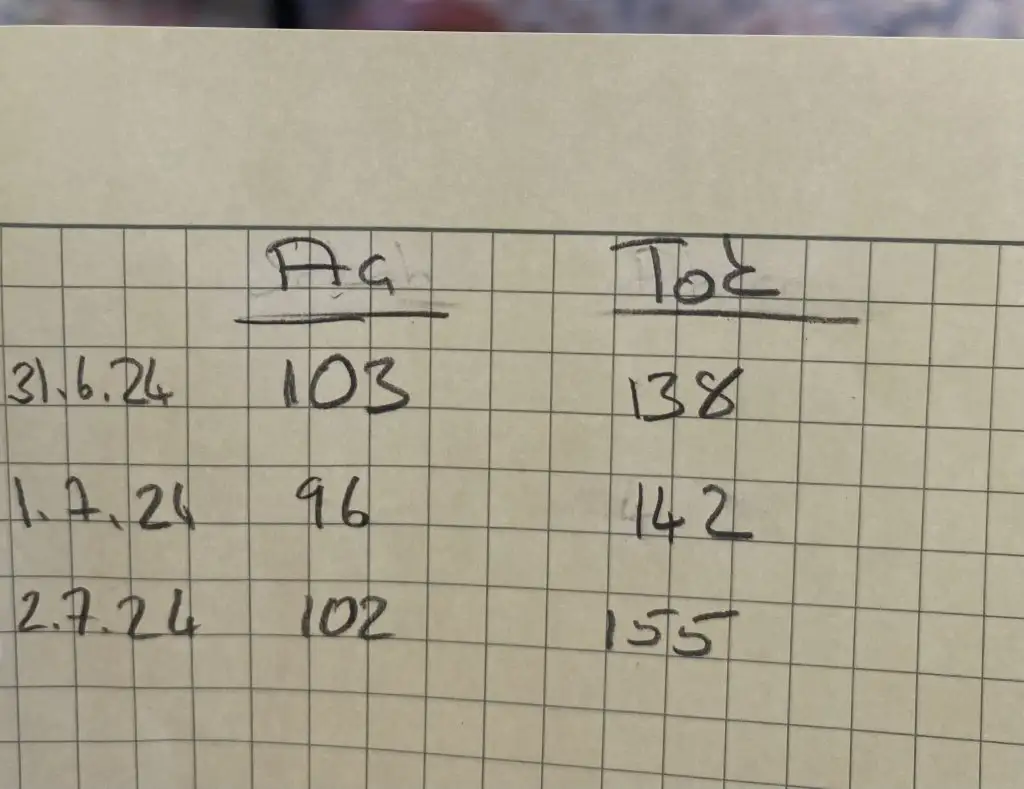 Ag Tot
31.6.24 103 138
1.7.24 96 142
2.7.24 102 155